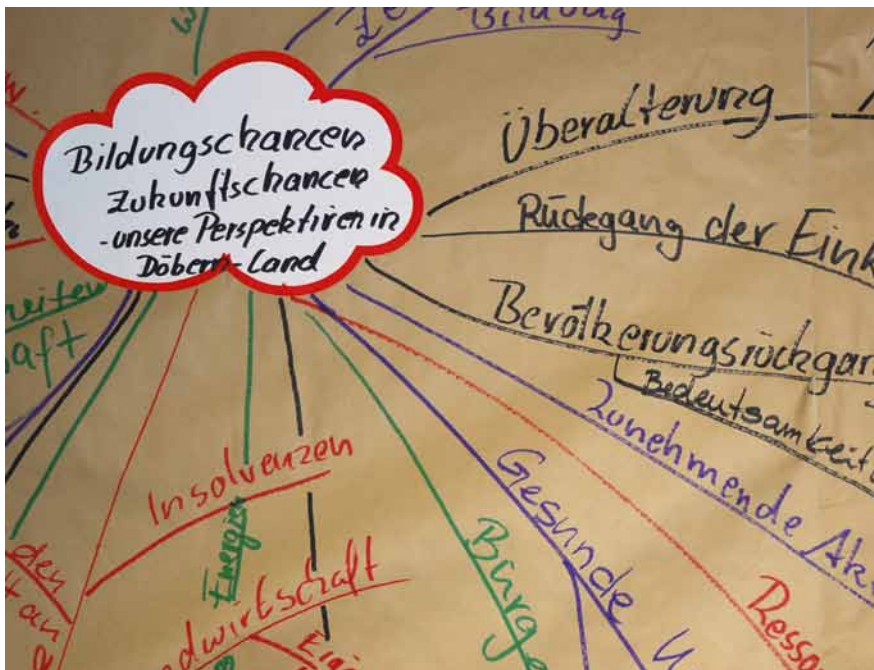 Bildung
Bildungschancen
Zukunftschancen
-unsere Perspektiven in
Döbern-Land
Überalterung
Rückgang der Eink
Bevölkerungsrückgan
Bedeutsamkeit
Zunehmende Ak
Gesunde
Resso
Bürge
Insolvenzen
Energien
ndwirtschaft
aft
den